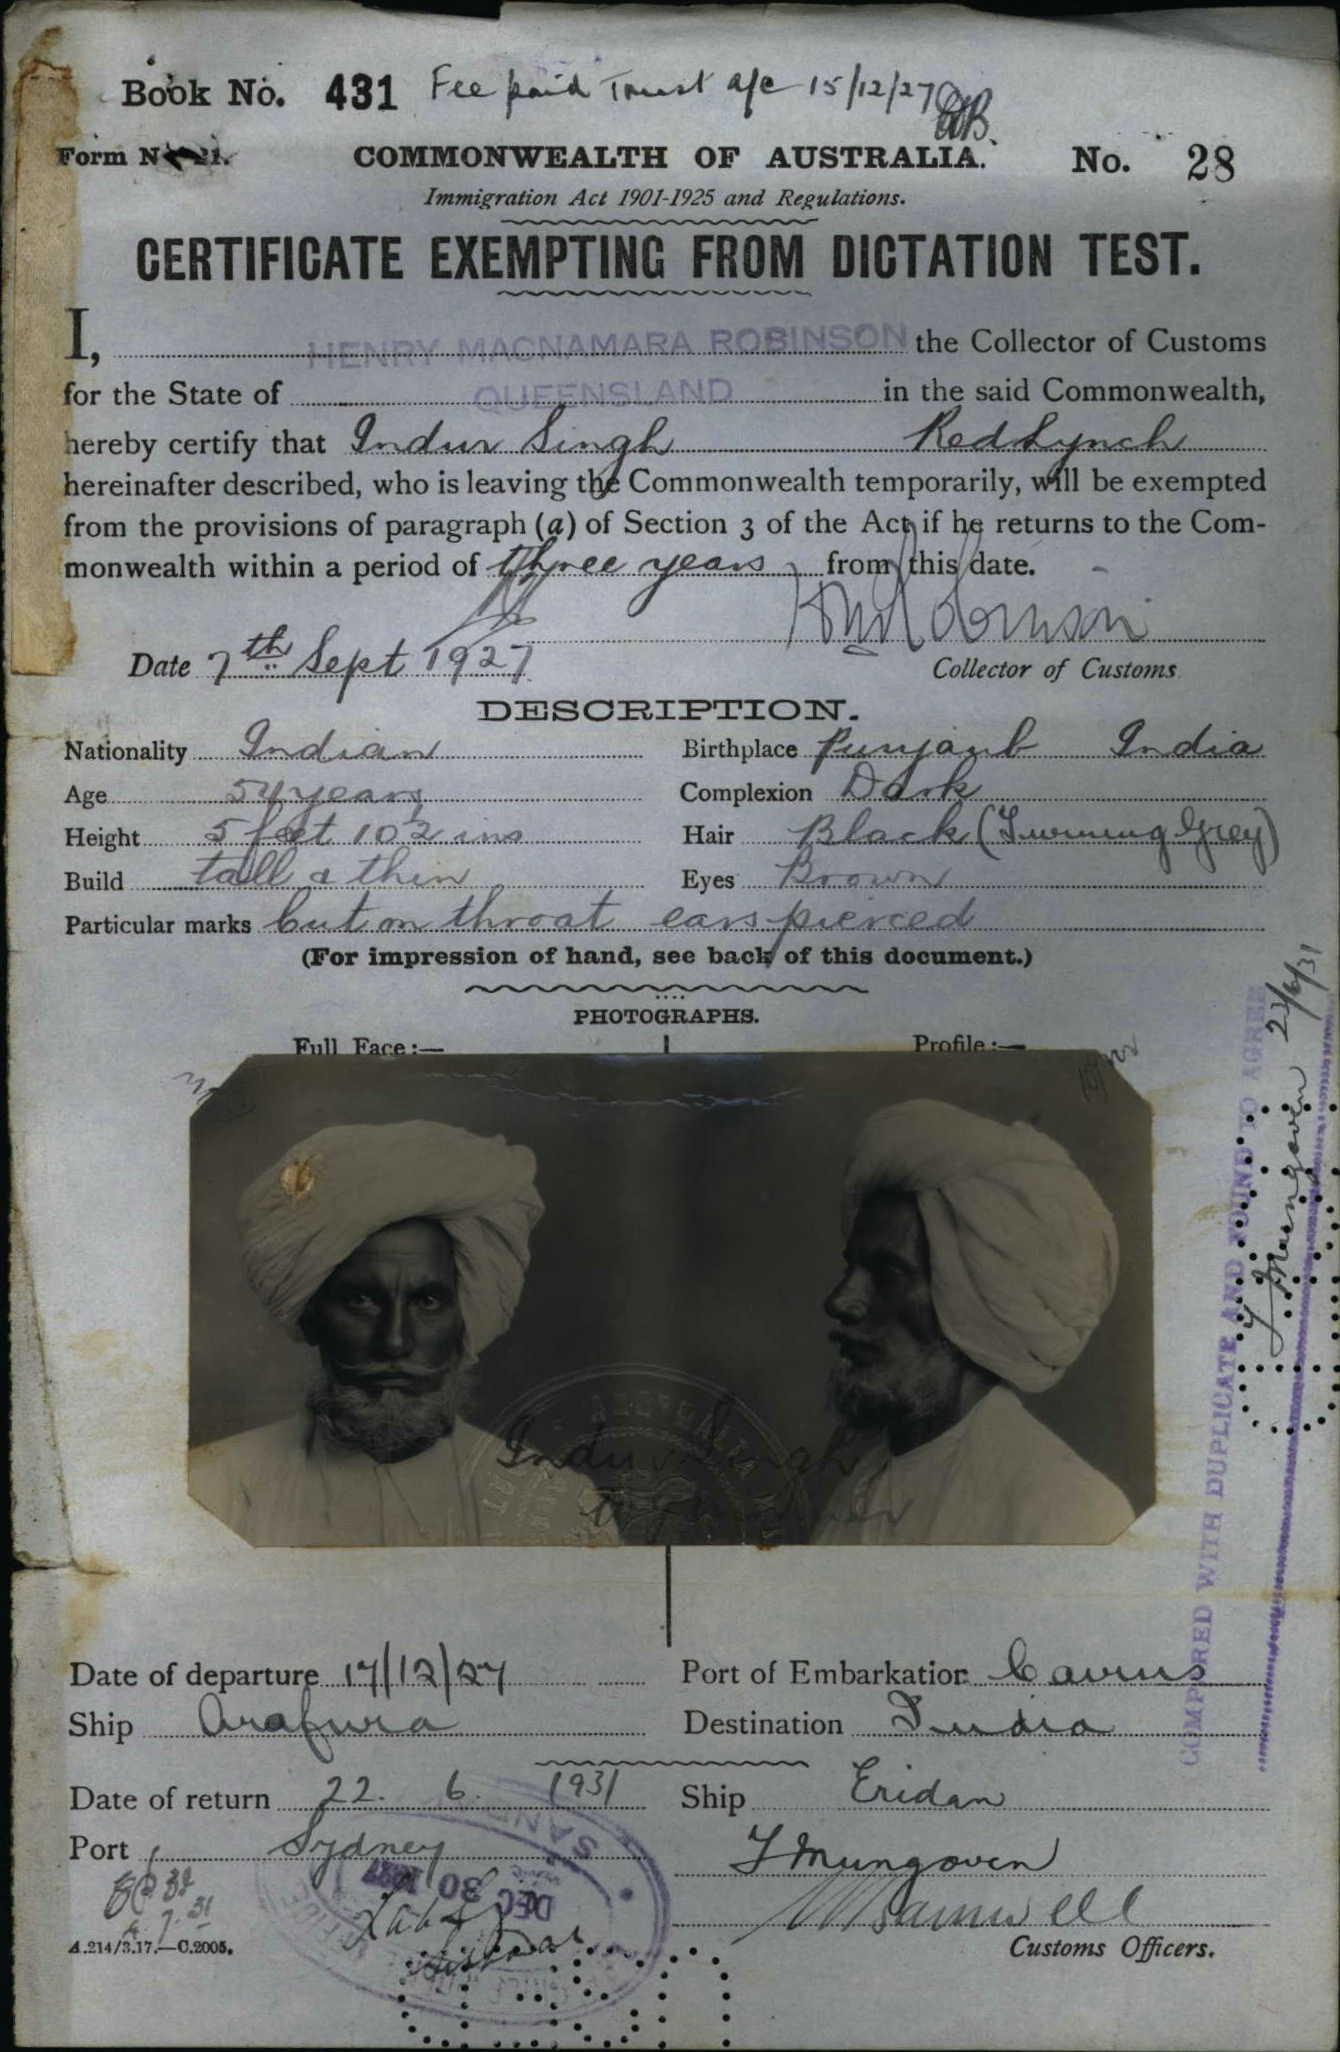 Book No. 431 Fee paid Trust a/c 15/12/27
Form No. 21.
COMMONWEALTH OF AUSTRALIA.
No. 28
Immigration Act 1901-1925 and Regulations.
CERTIFICATE EXEMPTING FROM DICTATION TEST.
I, HENRY MACNAMARA ROBINSON the Collector of Customs
for the State of QUEENSLAND in the said Commonwealth,
hereby certify that Indur Singh Redlynch
hereinafter described, who is leaving the Commonwealth temporarily, will be exempted
from the provisions of paragraph (a) of Section 3 of the Act if he returns to the Com-
monwealth within a period of three years from this date.
HM Robinson
Date 7th Sept 1927
Collector of Customs
DESCRIPTION.
Nationality Indian
Birthplace Punjaub India
Age 54 years
Complexion Dark
Height 5 feet 10½ ins
Hair Black (Turning Grey)
Build tall & thin
Eyes Brown
Particular marks Cut on throat ears pierced
(For impression of hand, see back of this document.)
PHOTOGRAPHS.
Full Face :—
Profile :—
Indur Singh
COMPARED WITH DUPLICATE AND FOUND TO AGREE
J Mungoven 23/6/31
Date of departure 17/12/27
Port of Embarkation Cairns
Ship Arafura
Destination India
Date of return 22. 6. 1931
Ship Eridan
Port Sydney
J Mungoven
DEC 30 1927
Customs Officers.
A.214/3.17.—C.2005.